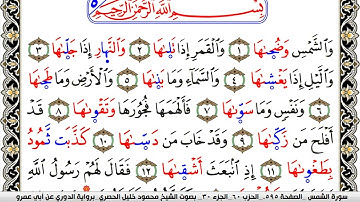 بِسْمِ اللَّهِ الرَّحْمَٰنِ الرَّحِيمِ
وَالشَّمْسِ وَضُحَىٰهَا ١ وَالْقَمَرِ إِذَا تَلَىٰهَا ٢ وَالنَّهَارِ إِذَا جَلَّىٰهَا ٣
وَاللَّيْلِ إِذَا يَغْشَىٰهَا ٤ وَالسَّمَاءِ وَمَا بَنَىٰهَا ٥ وَالْأَرْضِ وَمَا طَحَىٰهَا
٦ وَنَفْسٍ وَمَا سَوَّىٰهَا ٧ فَأَلْهَمَهَا فُجُورَهَا وَتَقْوَىٰهَا ٨ قَدْ
أَفْلَحَ مَن زَكَّىٰهَا ٩ وَقَدْ خَابَ مَن دَسَّىٰهَا ١٠ كَذَّبَتْ ثَمُودُ
بِطَغْوَىٰهَا ١١ إِذِ انۢبَعَثَ أَشْقَىٰهَا ١٢ فَقَالَ لَهُمْ رَسُولُ اللَّهِ
سورة الشمس _ الصفحة ٥٩٥_ الحزب ٦٠_ الجزء ٣٠_ بصوت الشيخ محمود خليل الحصري _برواية الدوري عن أبي عمرو